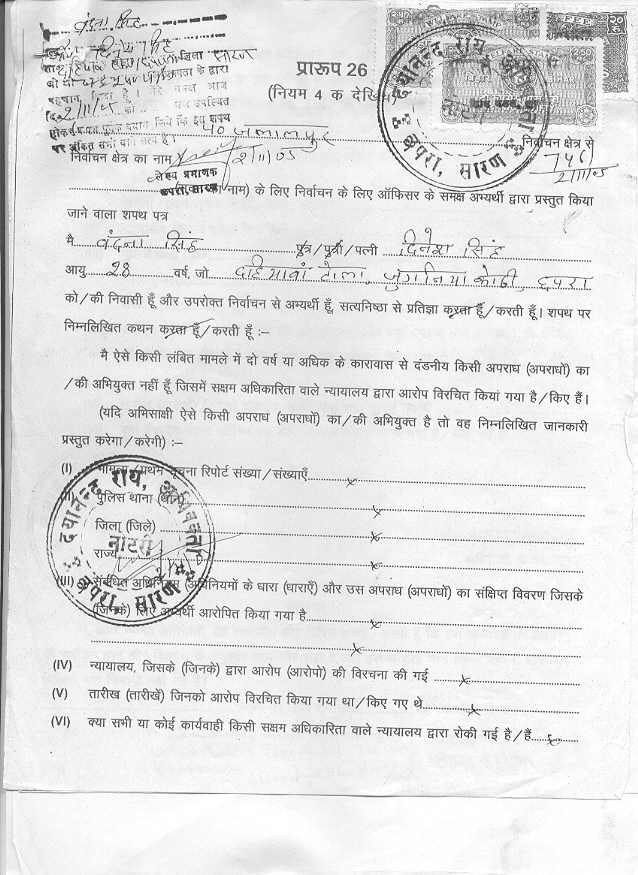 वंदना सिंह
दिनेश सिंह
सारण
के द्वारा
प्रारूप 26
(नियम 4 क देखिए)
पर अंकित सभी बातें सत्य है।
40 जलालपुर
निर्वाचन क्षेत्र से
निर्वाचन क्षेत्र का नाम
2/11/05
746
2/11/05
शपथ प्रमाणक
छपरा, सारण
दयानन्द राय, अधिवक्ता
छपरा, सारण
का नाम) के लिए निर्वाचन के लिए ऑफिसर के समक्ष अभ्यर्थी द्वारा प्रस्तुत किया
जाने वाला शपथ पत्र
मै वंदना सिंह पुत्र/पुत्री/पत्नी दिनेश सिंह
आयु 28 वर्ष, जो दहियावां टोला, जुगनिया कोठी, छपरा
को/की निवासी हूँ और उपरोक्त निर्वाचन से अभ्यर्थी हूँ, सत्यनिष्ठा से प्रतिज्ञा करता हूँ/करती हूँ। शपथ पर
निम्नलिखित कथन करता हूँ/करती हूँ :–
मै ऐसे किसी लंबित मामले में दो वर्ष या अधिक के कारावास से दंडनीय किसी अपराध (अपराधों) का
/की अभियुक्त नहीं हूँ जिसमें सक्षम अधिकारिता वाले न्यायालय द्वारा आरोप विरचित किया गया है/किए हैं।
(यदि अभिसाक्षी ऐसे किसी अपराध (अपराधों) का/की अभियुक्त है तो वह निम्नलिखित जानकारी
प्रस्तुत करेगा/करेगी) :–
(I) मामला/प्रथम सूचना रिपोर्ट संख्या/संख्याएँ x
पुलिस थाना (थाने) x
जिला (जिले) x
राज्य x
दयानन्द राय, अधिवक्ता
नोटरी
छपरा, सारण
(III) संबंधित अधिनियम/अधिनियमों के धारा (धाराएँ) और उस अपराध (अपराधों) का संक्षिप्त विवरण जिसके
(जिनके) लिए अभ्यर्थी आरोपित किया गया है x
x
(IV) न्यायालय, जिसके (जिनके) द्वारा आरोप (आरोपो) की विरचना की गई x
(V) तारीख (तारीखें) जिनको आरोप विरचित किया गया था/किए गए थे x
(VI) क्या सभी या कोई कार्यवाही किसी सक्षम अधिकारिता वाले न्यायालय द्वारा रोकी गई है/हैं x